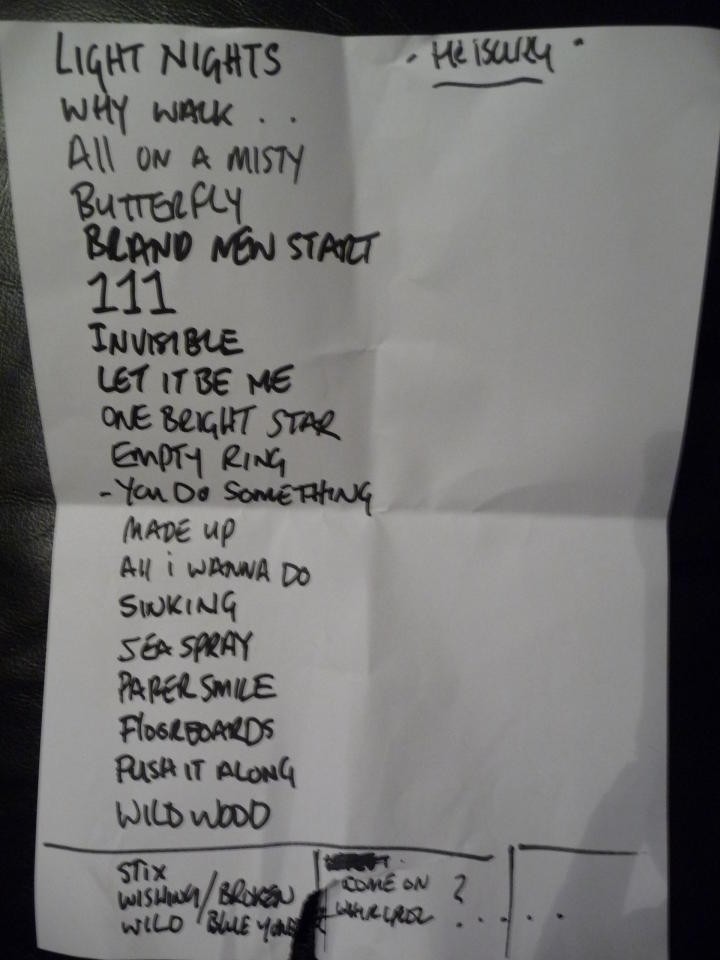 LIGHT NIGHTS
WHY WALK . .
All ON A MISTY
BUTTERFLY
BRAND NEW START
111
INVISIBLE
LET IT BE ME
ONE BRIGHT STAR
EMPTY RING
- YOU DO SOMETHING
MADE UP
All i WANNA DO
SINKING
SEA SPRAY
PAPER SMILE
FlOOREOARDS
PUSH IT ALONG
WILD WOOD
STIX
WISHING / BROKEN
WILD / BLUE YOND
COME ON ?
WHIRLPOOL . . . . .